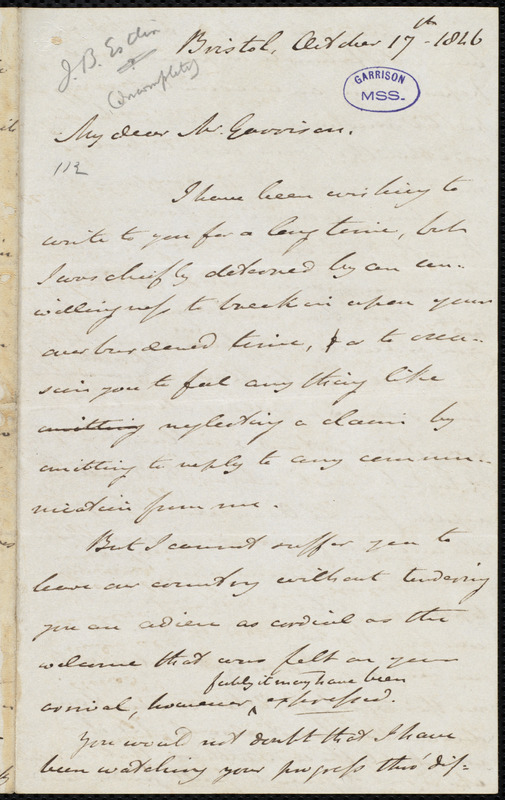 J. B. Estlin
(Incomplete)
Bristol, October 17th - 1846
GARRISON
MSS.
My dear Mr. Garrison,
112
I have been wishing to
write to you for a long time, but
I was chiefly deterred by an un-
willingness to break in upon your
overburdened time, or to occa-
sion you to feel any thing like
omitting neglecting a claim by
omitting to reply to any commu-
nication from me.
But I cannot suffer you to
leave our country without tendering
you an adieu as cordial as the
welcome that was felt on your
feebly it may have been
arrival, however ^ expressed.
You would not doubt that I have
been watching your progress thro' dif-